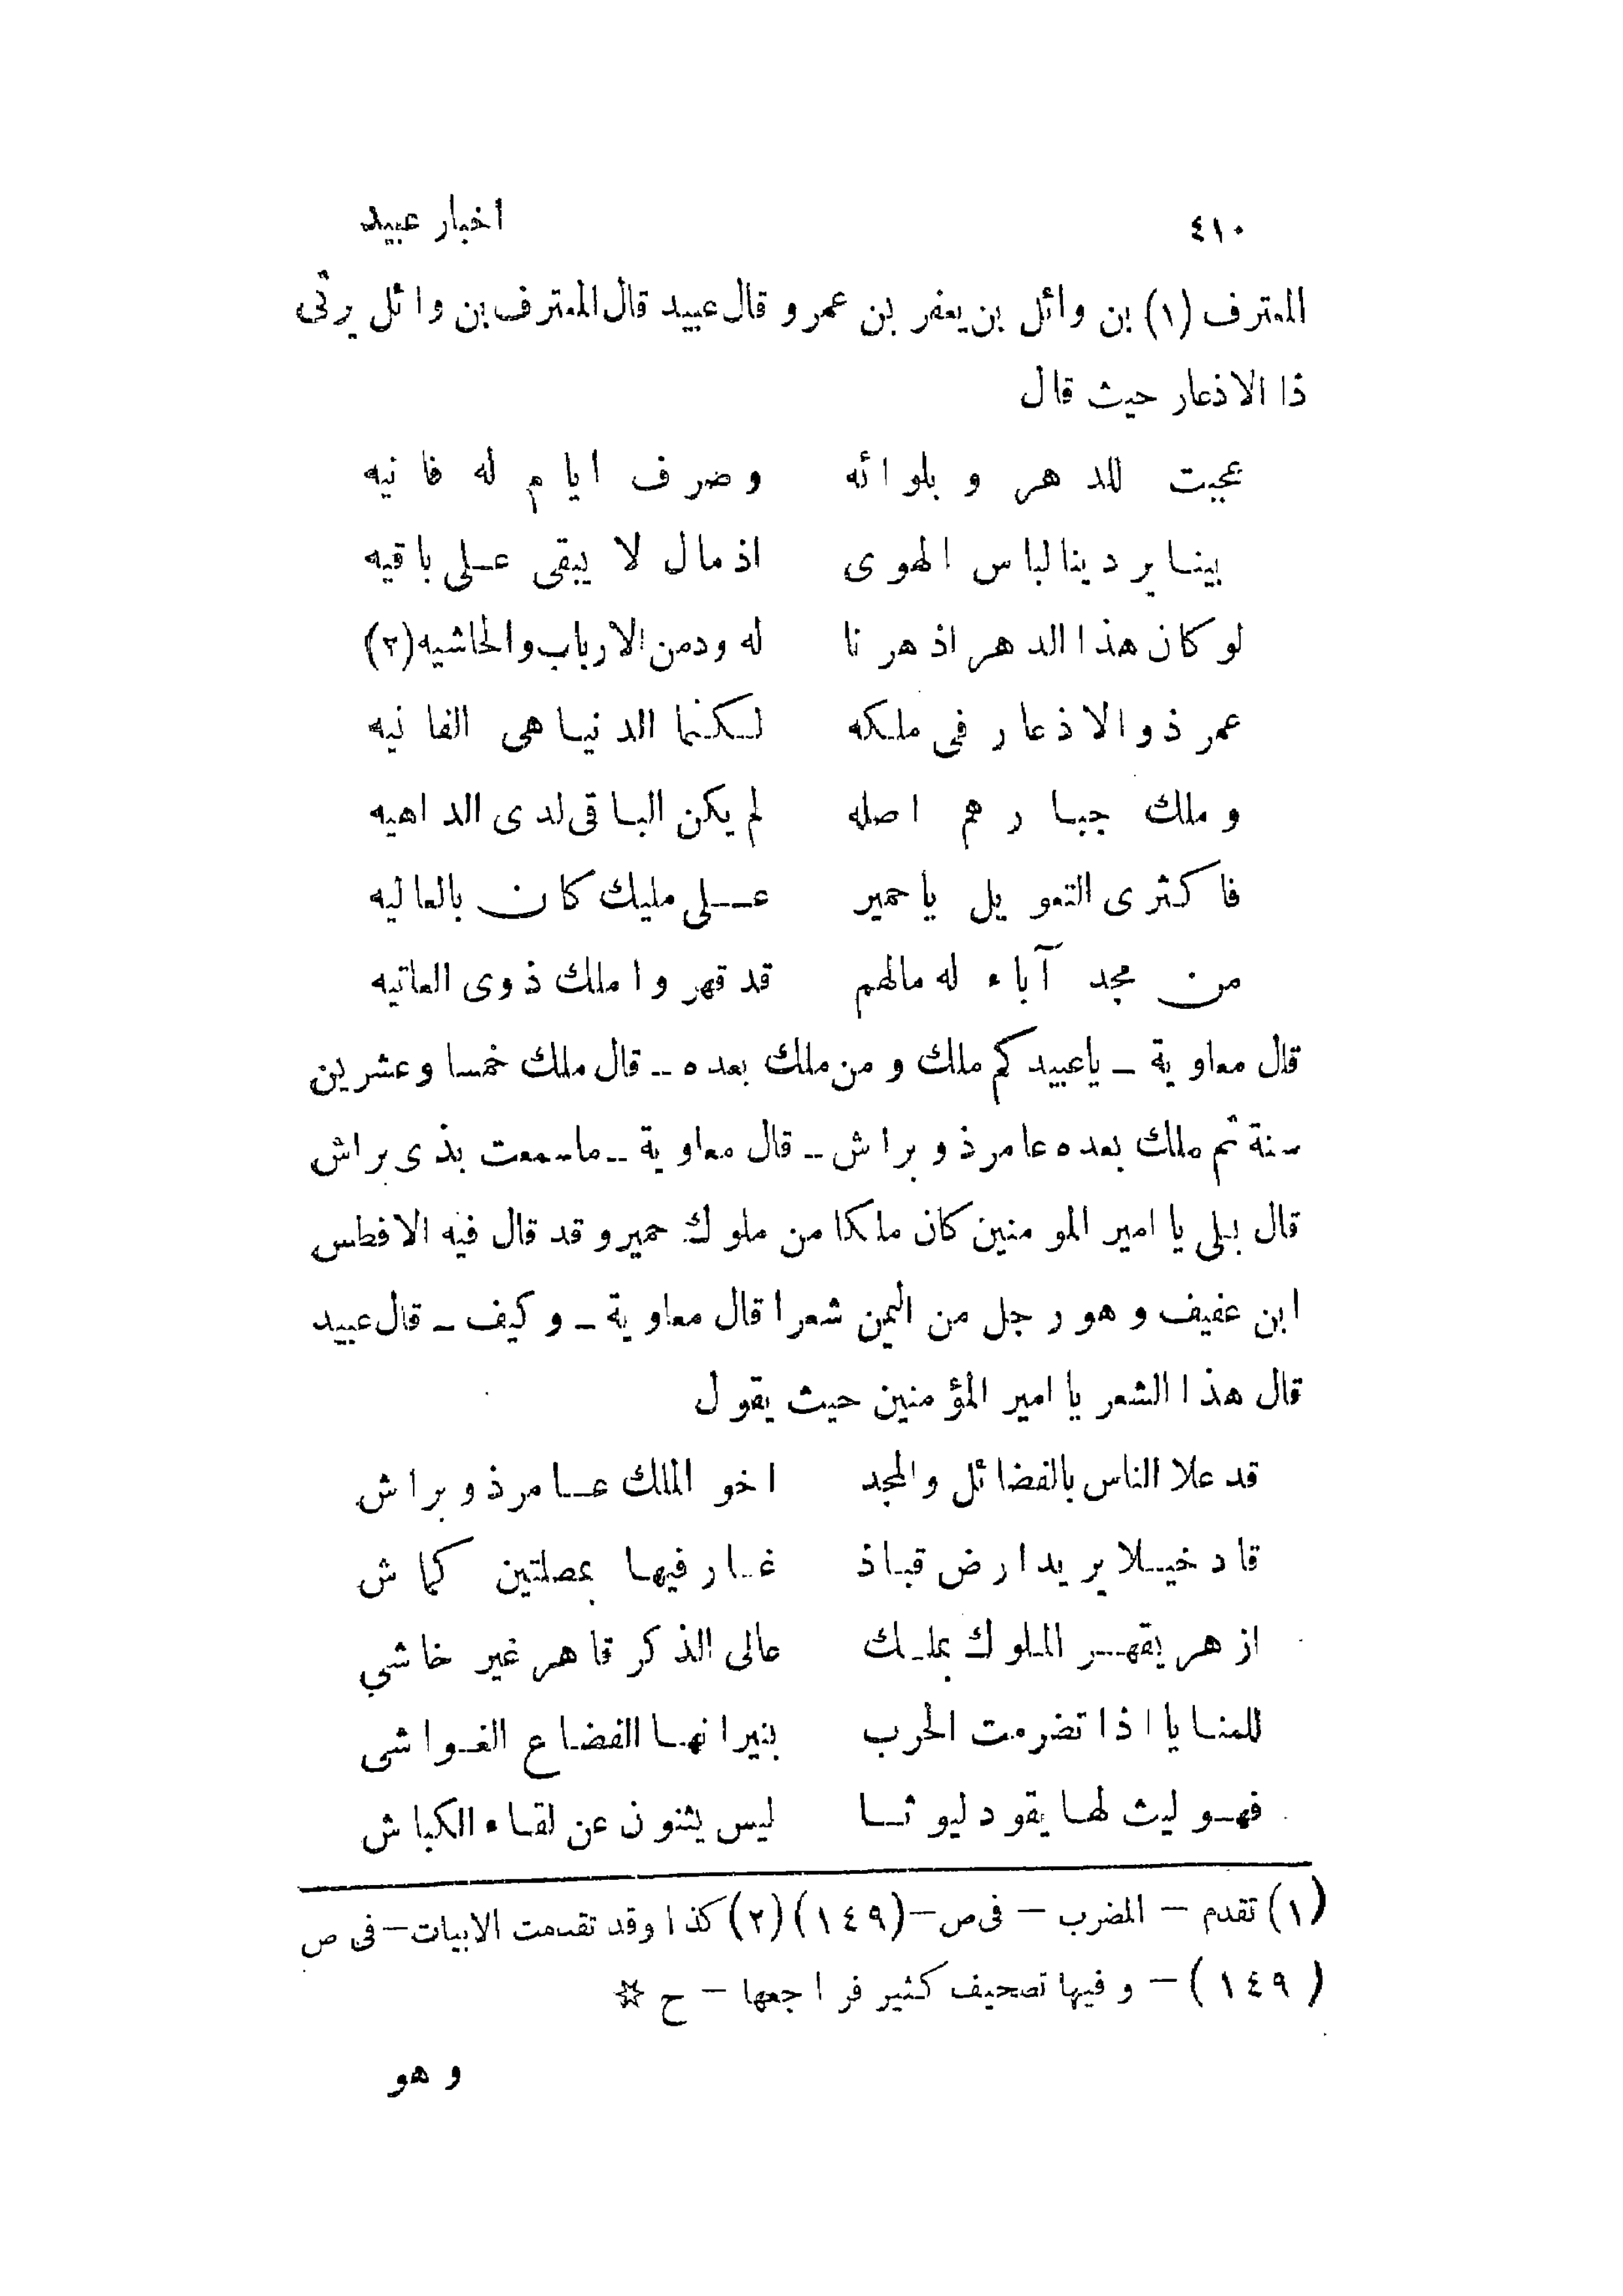 ٤١٠ اخبار عبيد
المعترف (١) بن وائل بن يعفر بن عمرو قال عبيد قال المعترف بن وائل يرثى
ذا الاذعار حيث قال
عجبت للدهر و بلوائه وصرف ايام له فانيه
بينا يردينا لباس الهوى اذ مال لا يبقى على باقيه
لوكان هذا الدهر اذ هرنا له ودمن الارباب والحاشيه (٢)
عمر ذو الاذعار فى ملكه لكنما الدنيا هى الفانيه
وملك جبارهم اصله لم يكن الباقى لدى الداهيه
فاكثرى التعويل ياحمير على مليك كان بالعاليه
من مجد آباء له مالهم قد قهروا ملك ذوى العاتيه
قال معاوية – ياعبيد كم ملك ومن ملك بعده – قال ملك خمسا وعشرين
سنة ثم ملك بعده عامر ذو براش – قال معاوية – ماسمعت بذى براش
قال بلى يا امير المومنين كان ملكا من ملوك حمير وقد قال فيه الافطس
ابن عفيف وهو رجل من اليمن شعرا قال معاوية – وكيف – قال عبيد
قال هذا الشعر يا امير المؤمنين حيث يقول
قد علا الناس بالفضائل والمجد اخو الملك عامر ذو براش
قاد خيلا يريد ارض قباذ غار فيها بمصلتين كماش
ازهر يقهر الملوك بملك عالى الذكر قاهر غير خاشي
للمنايا اذا تضرمت الحرب بنيرانها الفضاع الغواشى
فهو ليث لها يقود ليوثا ليس يثنون عن لقاء الكباش
(١) تقدم – المضرب – فى ص – (١٤٩) (٢) كذا وقد تقدمت الابيات – فى ص
(١٤٩) – وفيها تصحيف كثير فراجعها – ح ☆
وهو